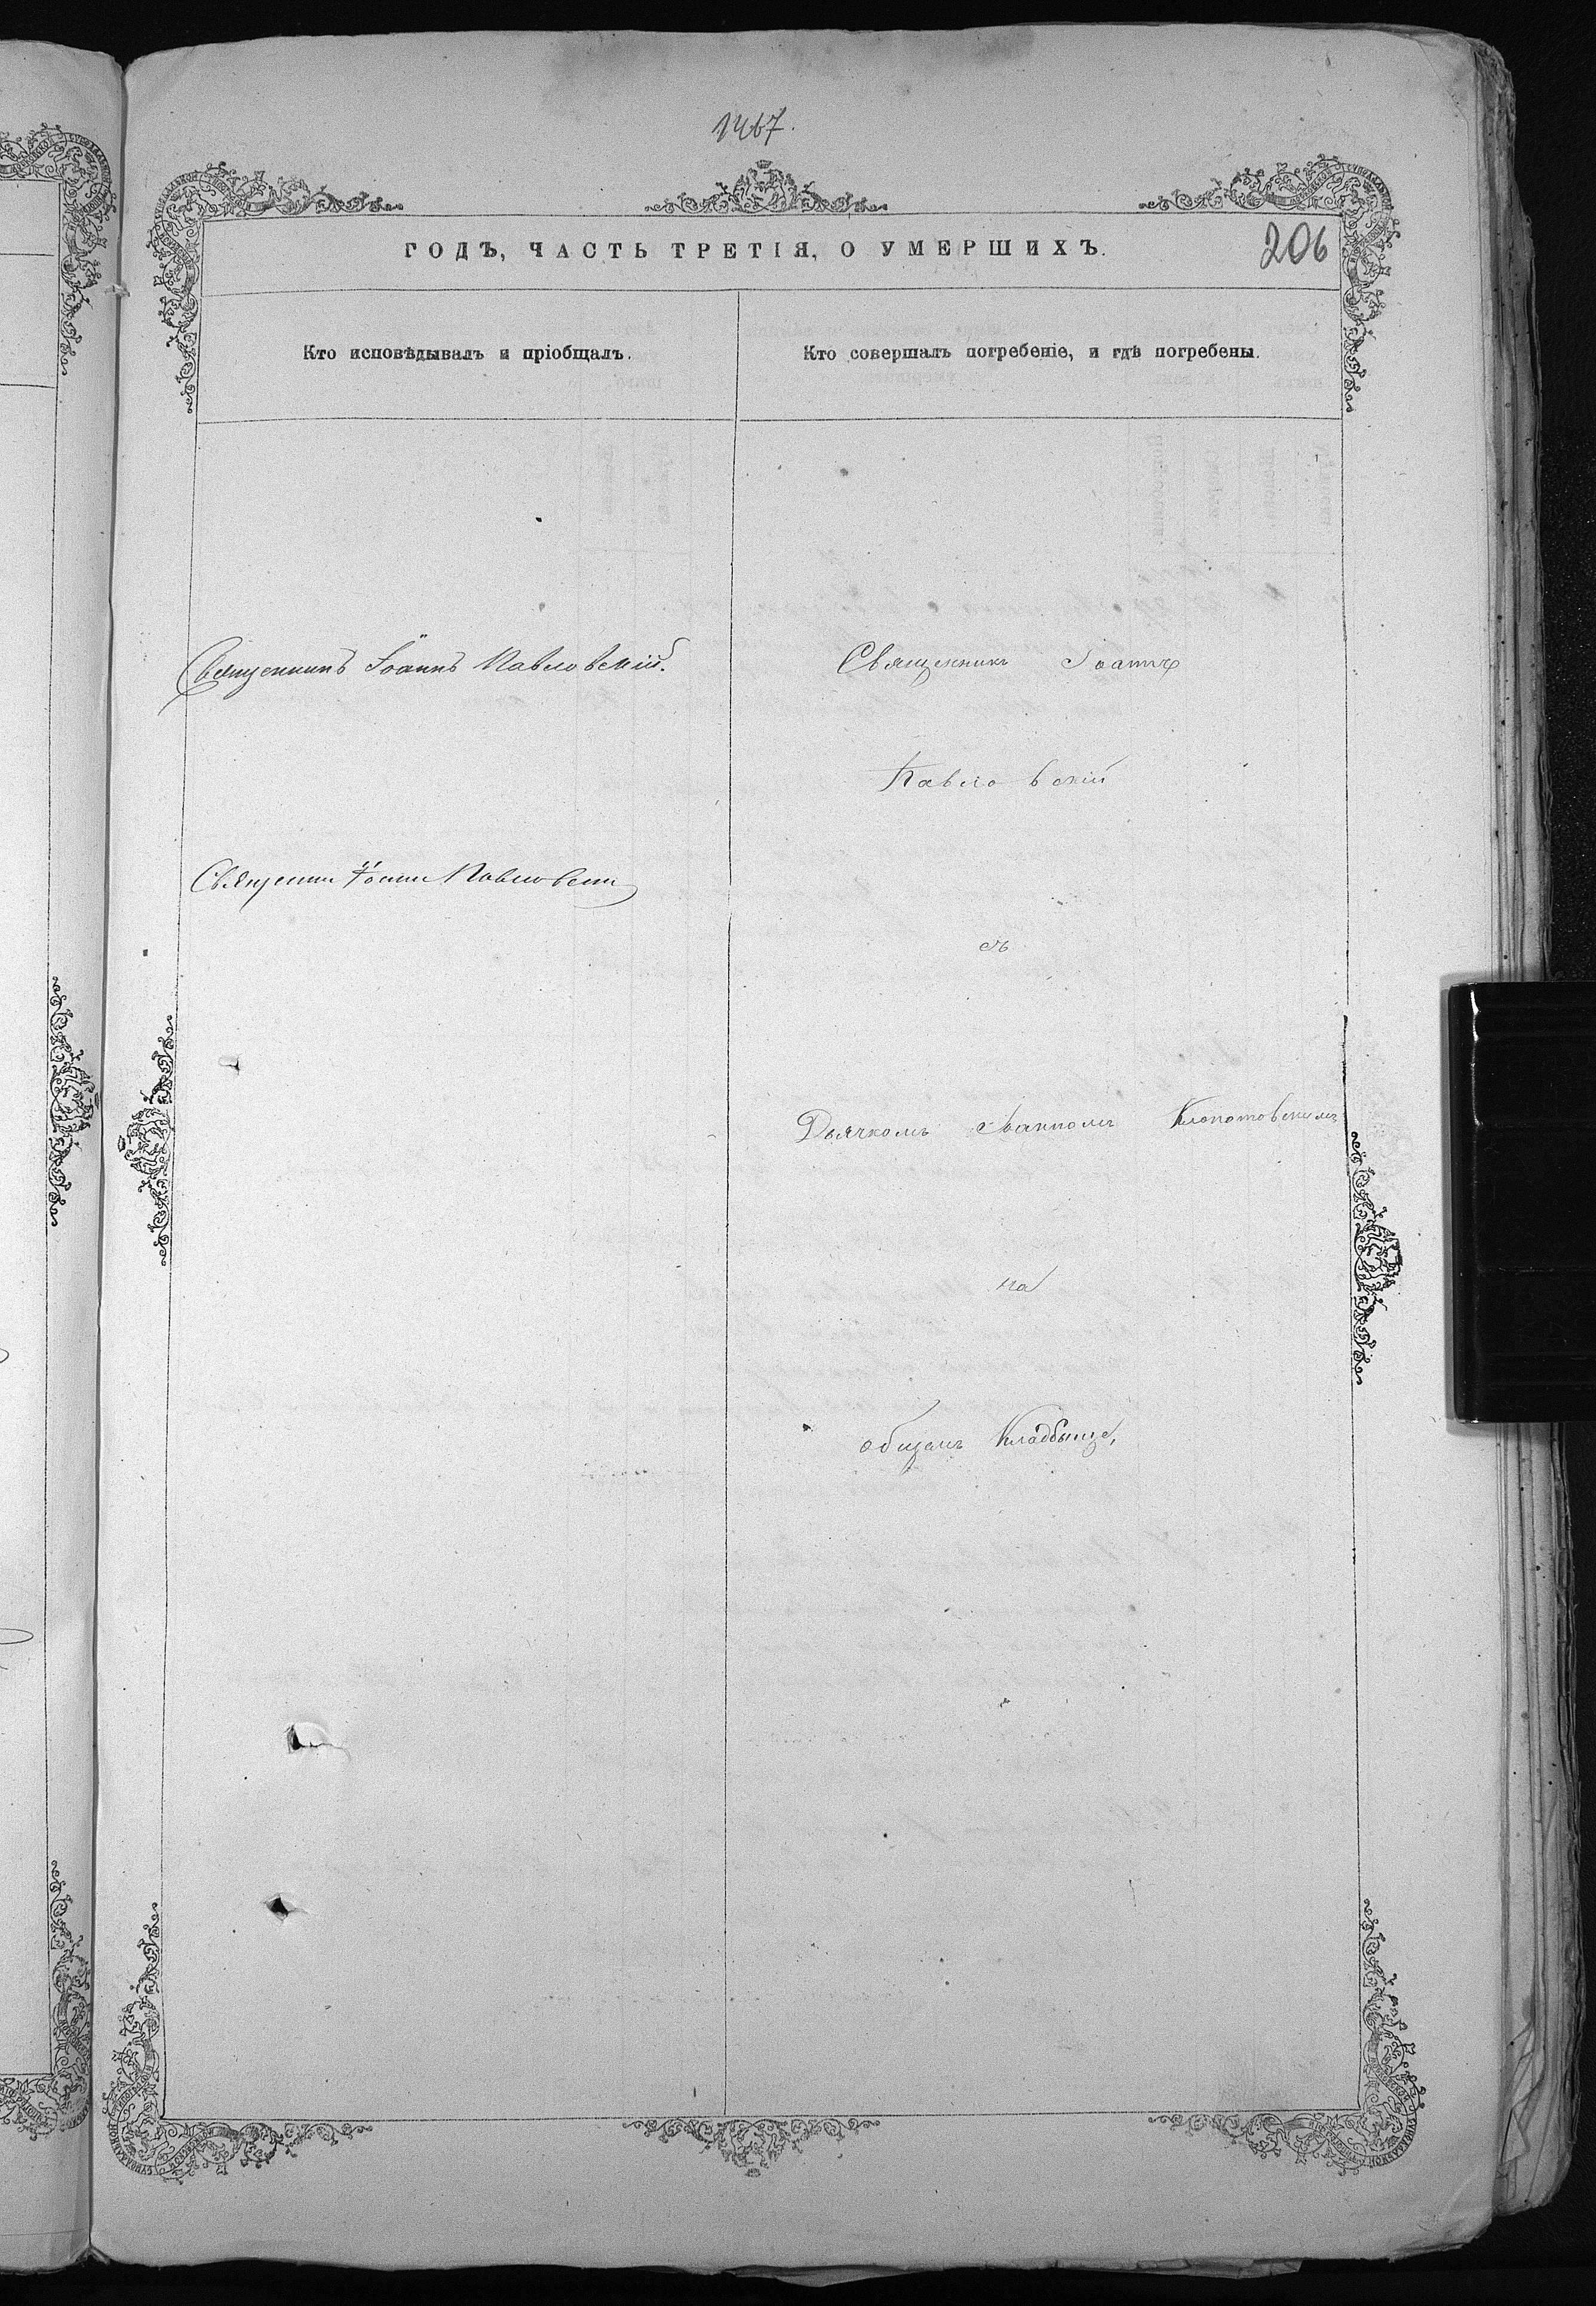 1467.
ГОДЪ, ЧАСТЬ ТРЕТІЯ, О УМЕРШИХЪ.
206
Кто исповѣдывалъ и пріобщалъ.
Кто совершалъ погребеніе, и гдѣ погребены.
Священникъ Іоаннъ Павловскій.
Священ Іоанн Павловскі
Священникъ Іоаннъ
Павловскій
съ
Дьячкомъ Іоанномъ Клопотовскимъ
на
общемъ Кладбыще,